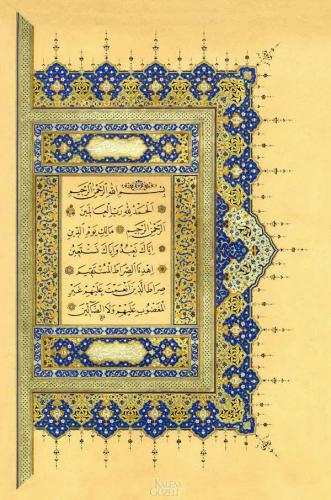 بِسْمِ اللّٰهِ الرَّحْمٰنِ الرَّحٖيمِ
اَلْحَمْدُ لِلّٰهِ رَبِّ الْعَالَمٖينَ
اَلرَّحْمٰنِ الرَّحٖيمِ مَالِكِ يَوْمِ الدّٖينِ
اِيَّاكَ نَعْبُدُ وَاِيَّاكَ نَسْتَعٖينُ
اِهْدِنَا الصِّرَاطَ الْمُسْتَقٖيمَ
صِرَاطَ الَّذٖينَ اَنْعَمْتَ عَلَيْهِمْ غَيْرِ
الْمَغْضُوبِ عَلَيْهِمْ وَلَا الضَّٓالّٖينَ
KALEM GÜZELİ